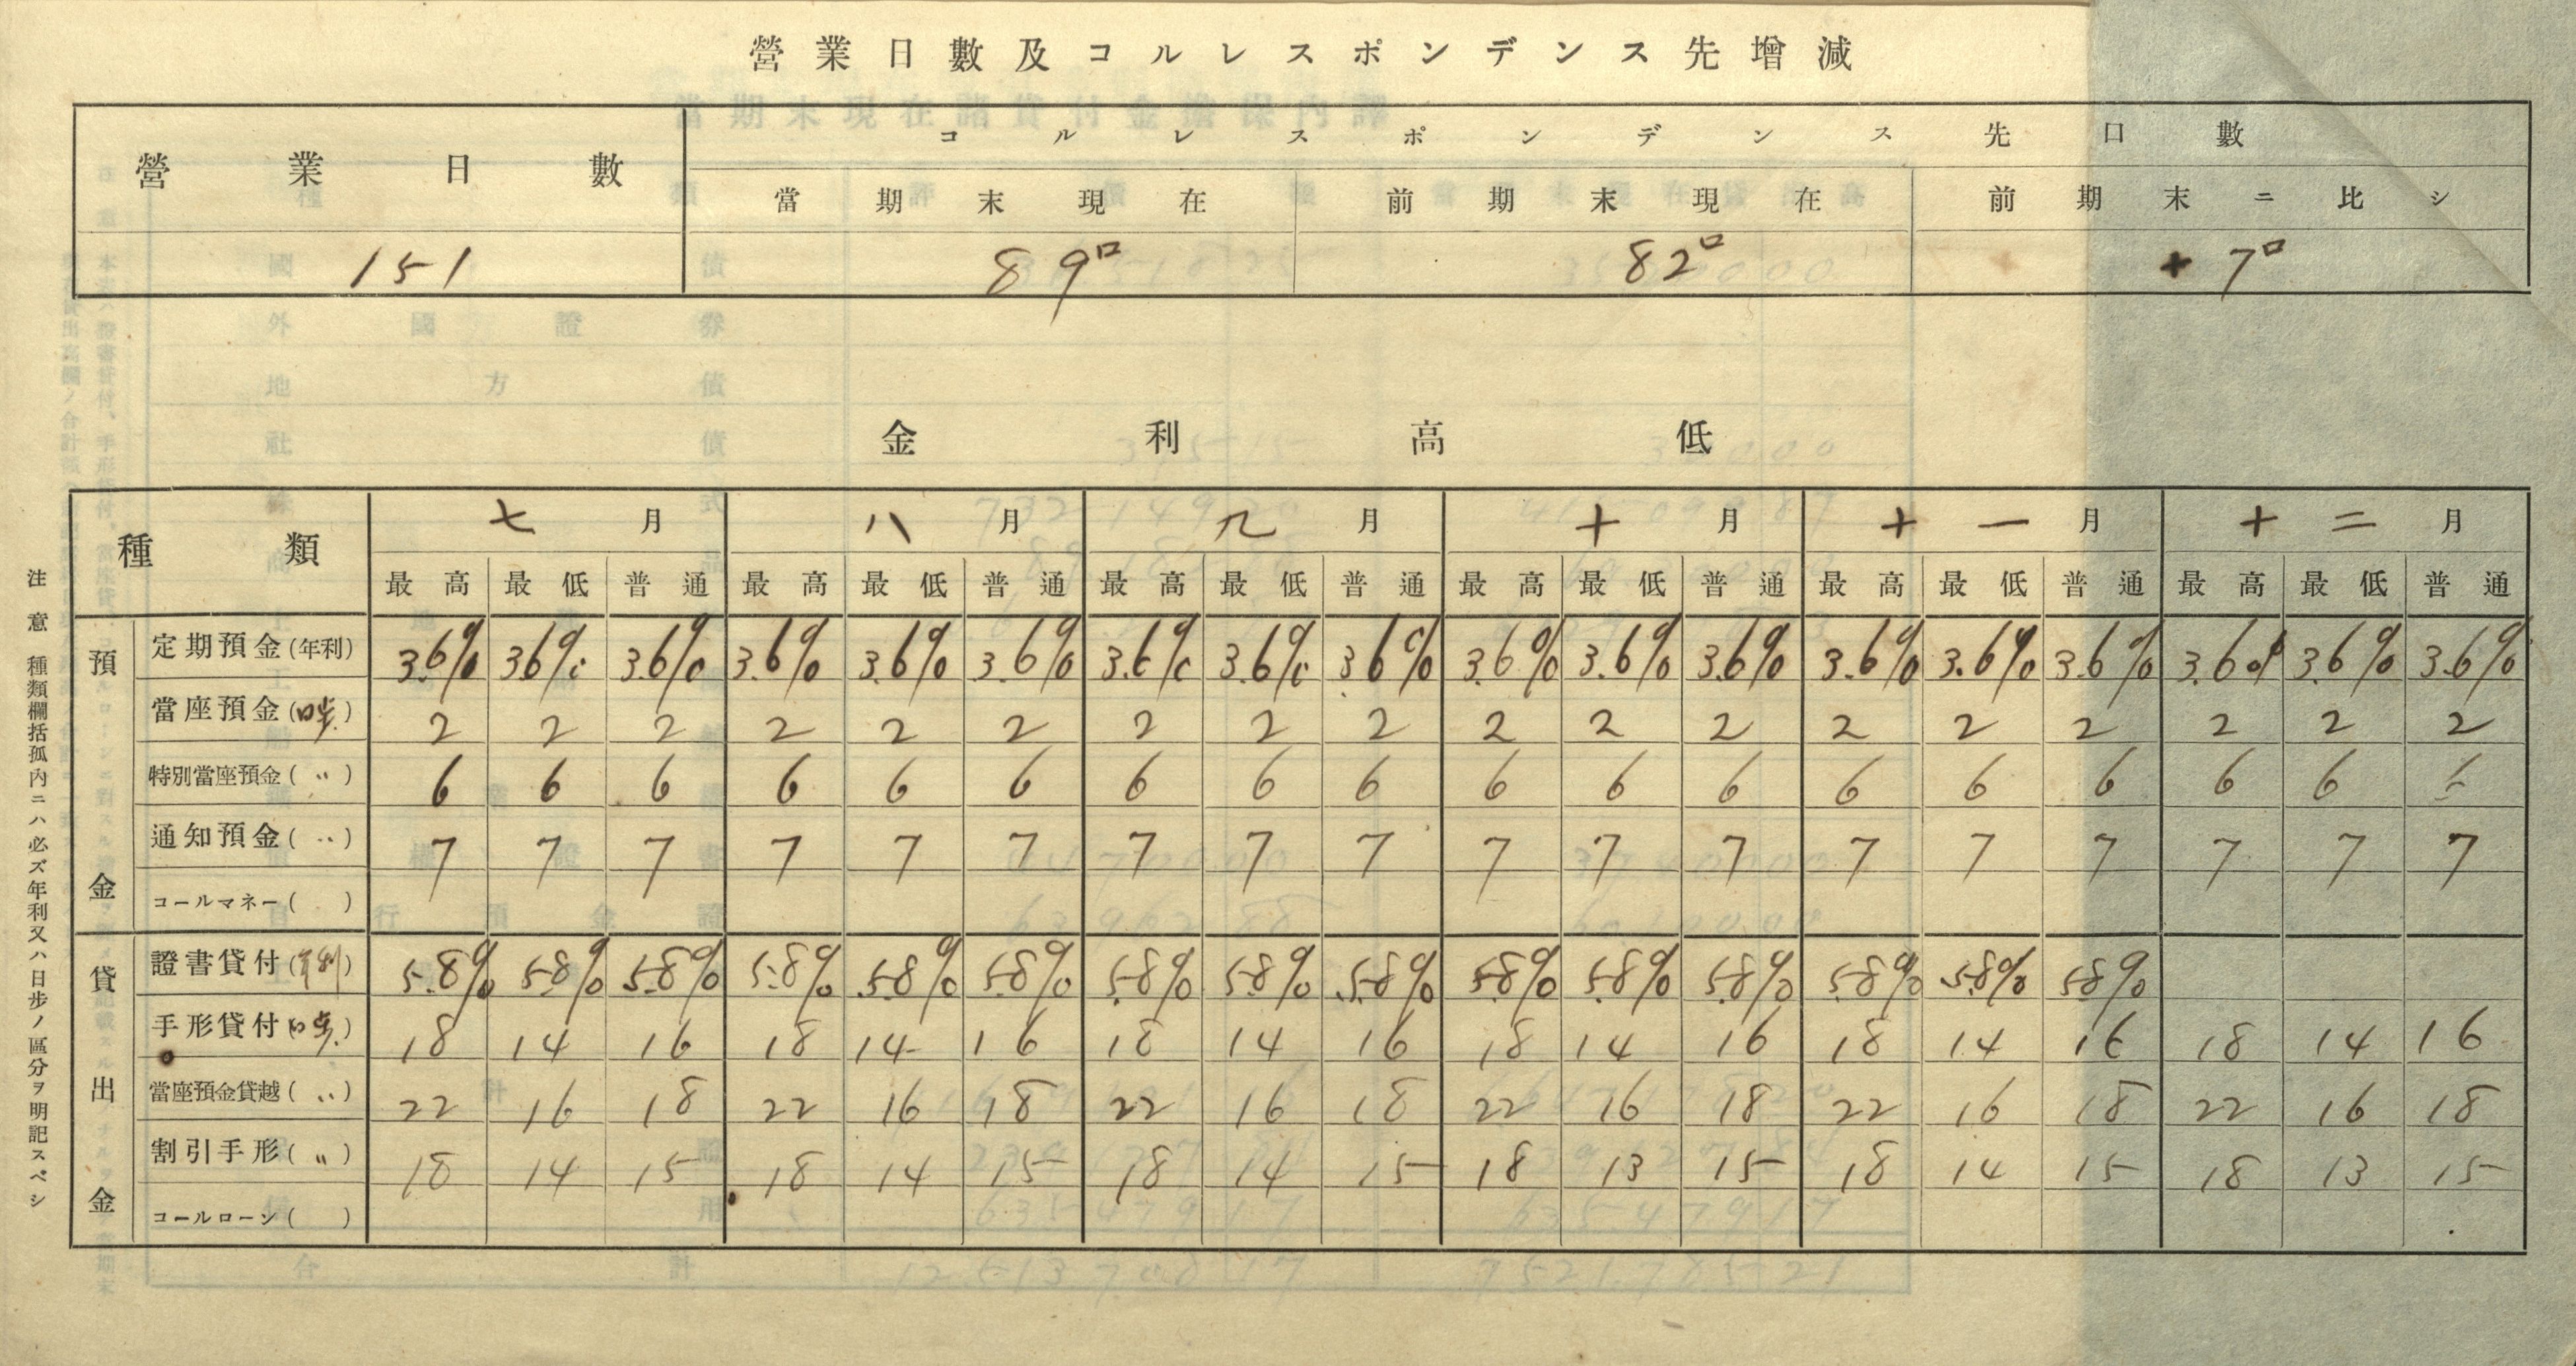 營業日數及コルレスポンデンス先增減
營業日數 コルレスポンデンス先口數
當期末現在 前期末現在 前期末ニ比シ
151 89口 82口 + 7口
金利高低
種類 七月 八月 九月 十月 十一月 十二月
最高 最低 普通 最高 最低 普通 最高 最低 普通 最高 最低 普通 最高 最低 普通 最高 最低 普通
預金
定期預金(年利) 3.6% 3.6% 3.6% 3.6% 3.6% 3.6% 3.6% 3.6% 3.6% 3.6% 3.6% 3.6% 3.6% 3.6% 3.6% 3.6% 3.6% 3.6%
當座預金(日歩) 2 2 2 2 2 2 2 2 2 2 2 2 2 2 2 2 2 2
特別當座預金(〃) 6 6 6 6 6 6 6 6 6 6 6 6 6 6 6 6 6 6
通知預金(〃) 7 7 7 7 7 7 7 7 7 7 7 7 7 7 7 7 7 7
コールマネー( )
貸出金
證書貸付(年利) 5.8% 5.8% 5.8% 5.8% 5.8% 5.8% 5.8% 5.8% 5.8% 5.8% 5.8% 5.8% 5.8% 5.8% 5.8%
手形貸付(日歩) 18 14 16 18 14 16 18 14 16 18 14 16 18 14 16 18 14 16
當座預金貸越(〃) 22 16 18 22 16 18 22 16 18 22 16 18 22 16 18 22 16 18
割引手形(〃) 18 14 15 18 14 15 18 14 15 18 13 15 18 14 15 18 13 15
コールローン( )
注意 種類欄括孤内ニハ必ズ年利又ハ日步ノ區分ヲ明記スベシ